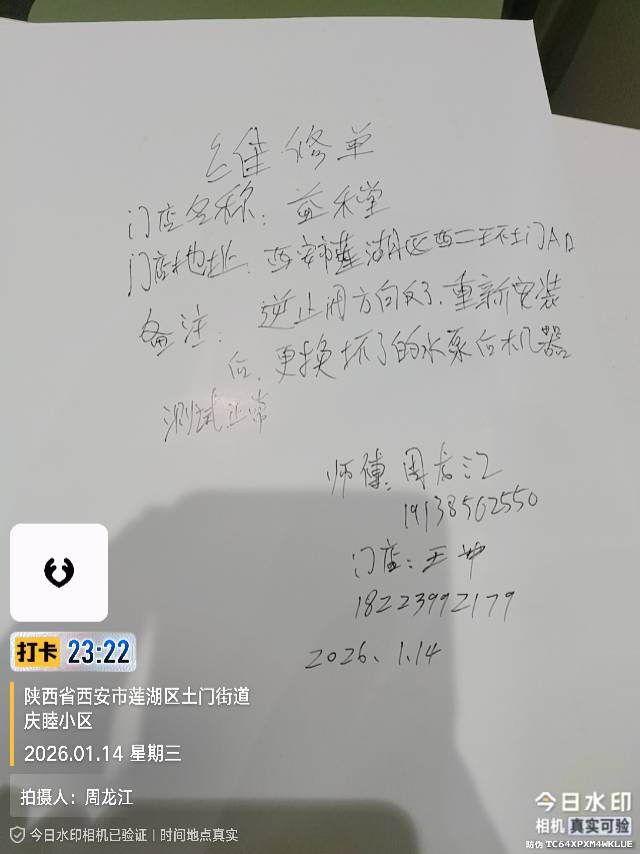 维修单
门店名称：益禾堂
门店地址：西安市莲湖区西二环土门A口
备注：逆止阀方向反了，重新安装
后，更换坏了的水泵后机器
测试正常
师傅：周龙江
19138562550
门店：王
18223992179
2026.1.14
打卡 23:22
陕西省西安市莲湖区土门街道
庆睦小区
2026.01.14 星期三
拍摄人：周龙江
今日水印相机已验证 | 时间地点真实
今日水印
相机 真实可验
防伪 TC64XPXM4WKLUE